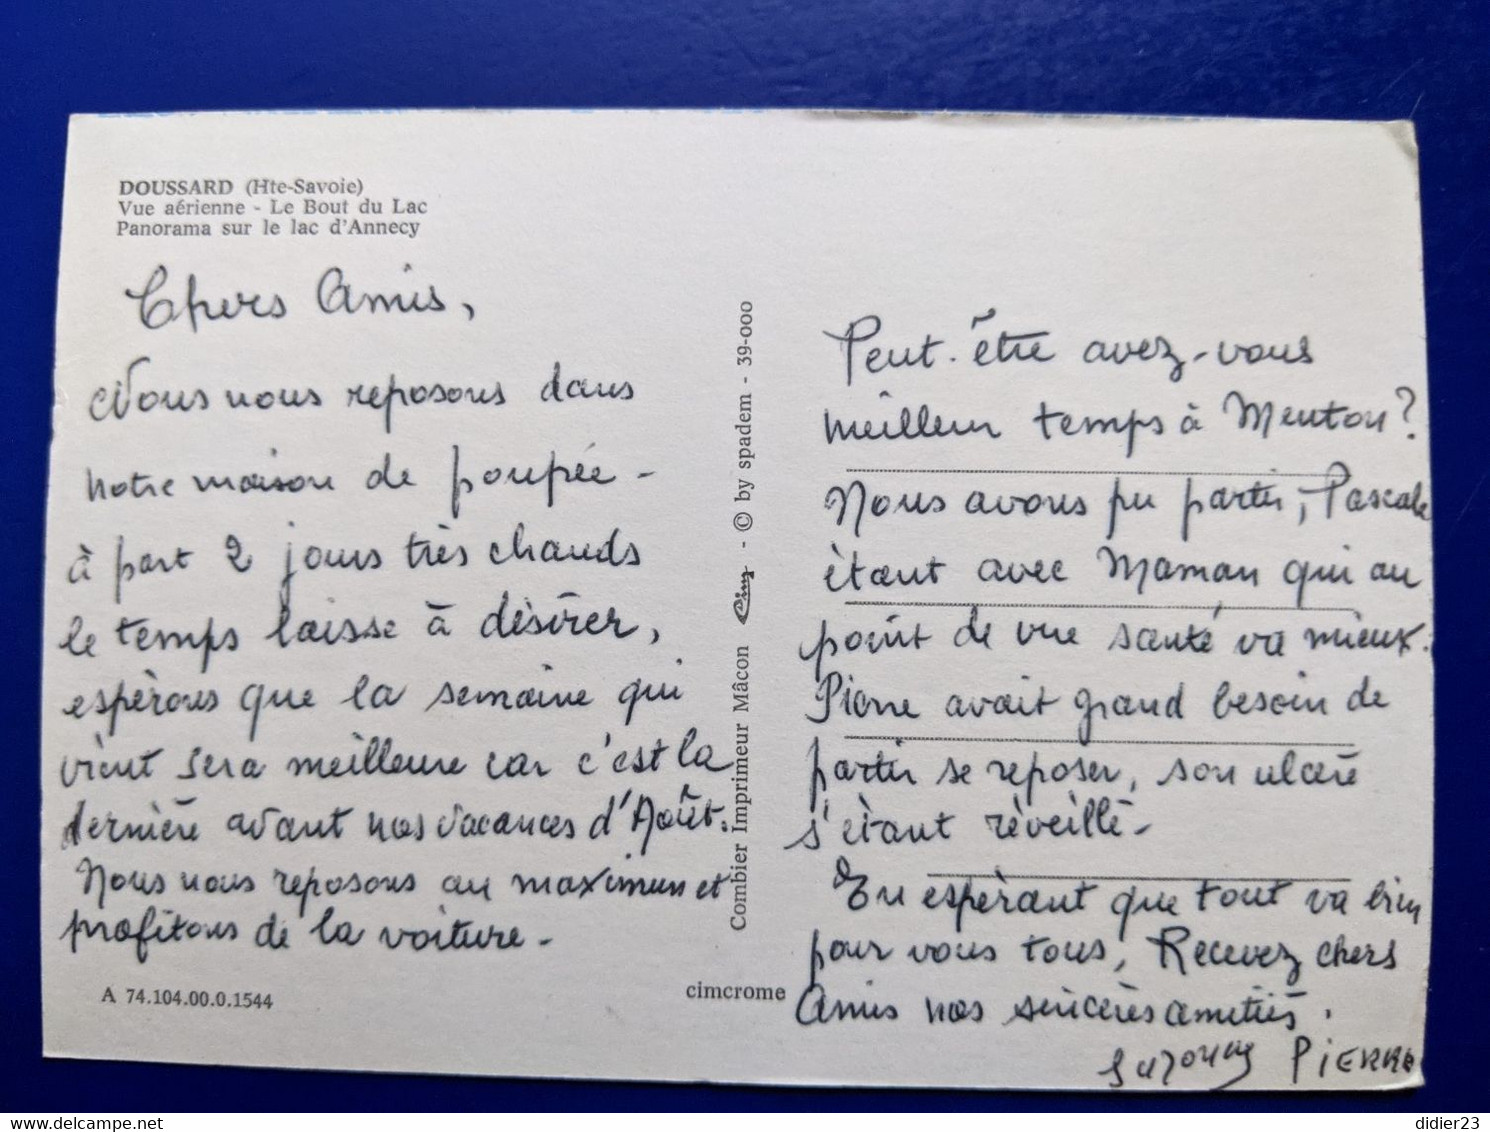 DOUSSARD (Hte-Savoie)
Vue aérienne - Le Bout du Lac
Panorama sur le lac d'Annecy
Chers Amis,
Nous nous reposons dans
notre maison de poupée -
à part 2 jours très chauds
le temps laisse à désirer,
espérons que la semaine qui
vient sera meilleure car c'est la
dernière avant nos vacances d'Août.
Nous nous reposons au maximum et
profitons de la voiture -
A 74.104.00.0.1544
Combier Imprimeur Mâcon Cim - © by spadem - 39-000
cimcrome
Peut-être avez-vous
meilleur temps à Menton?
Nous avons pu partir, Pascale
étant avec Maman qui au
point de vue santé va mieux.
Pierre avait grand besoin de
partir se reposer, son ulcère
s'étant réveillé -
En espérant que tout va bien
pour vous tous, Recevez chers
Amis nos sincères amitiés.
Suzanne PIERRE
didier23